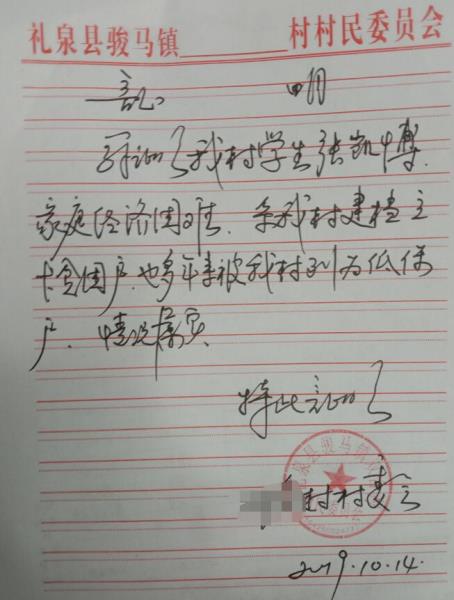 礼泉县骏马镇______村村民委员会
证 明
兹证明我村学生张凯博,
家庭经济困难.系我村建档立
卡贫困户.也多年来被我村列为低保
户.情况属实.
特此证明
村村委会
2019.10.14.